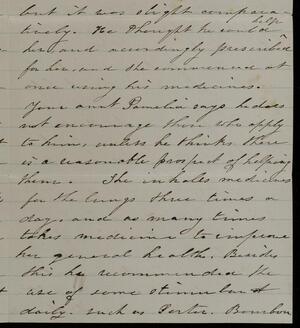 but it was slight compara-
tively. He thought he could help
her, and accordingly prescribed
for her, and she commenced at
once using his medicines.
Your aunt Pamelia says he does
not encourage those who apply
to him, unless he thinks there
is a reasonable prospect of helping
them. She inhales medicines
for the lungs three times a
day, and as many times
takes medicine to improve
her general health. Besides
this he recommended the
use of some stimulant
daily, such as Porter, Bourbon